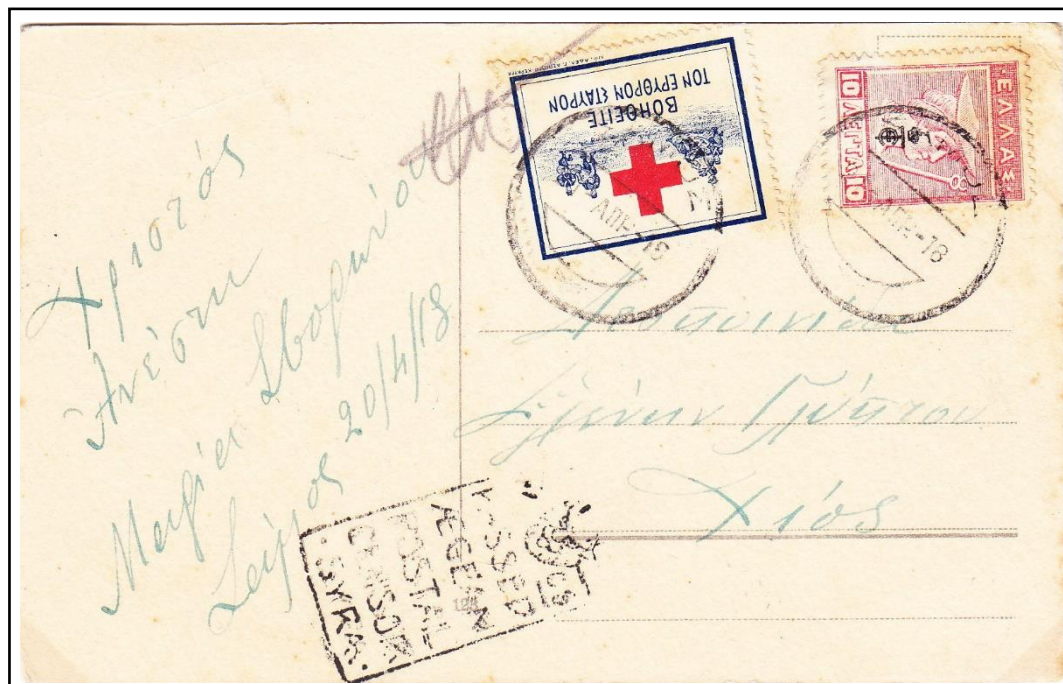 Χριστός
Ἀνέστη
Μαρία
20/4/18
ΒΟΗΘΕΙΤΕ
ΤΟΝ ΕΡΥΘΡΟΝ ΣΤΑΥΡΟΝ
ΕΛΛΑΣ
10 ΛΕΠΤΑ 10
ΑΠΡ-18
ΑΠΡ-18
Δεσποινίδα
Ἑλένην
Χίος
PASSED
ÆGEAN
POSTAL
CENSOR
·SYRA·